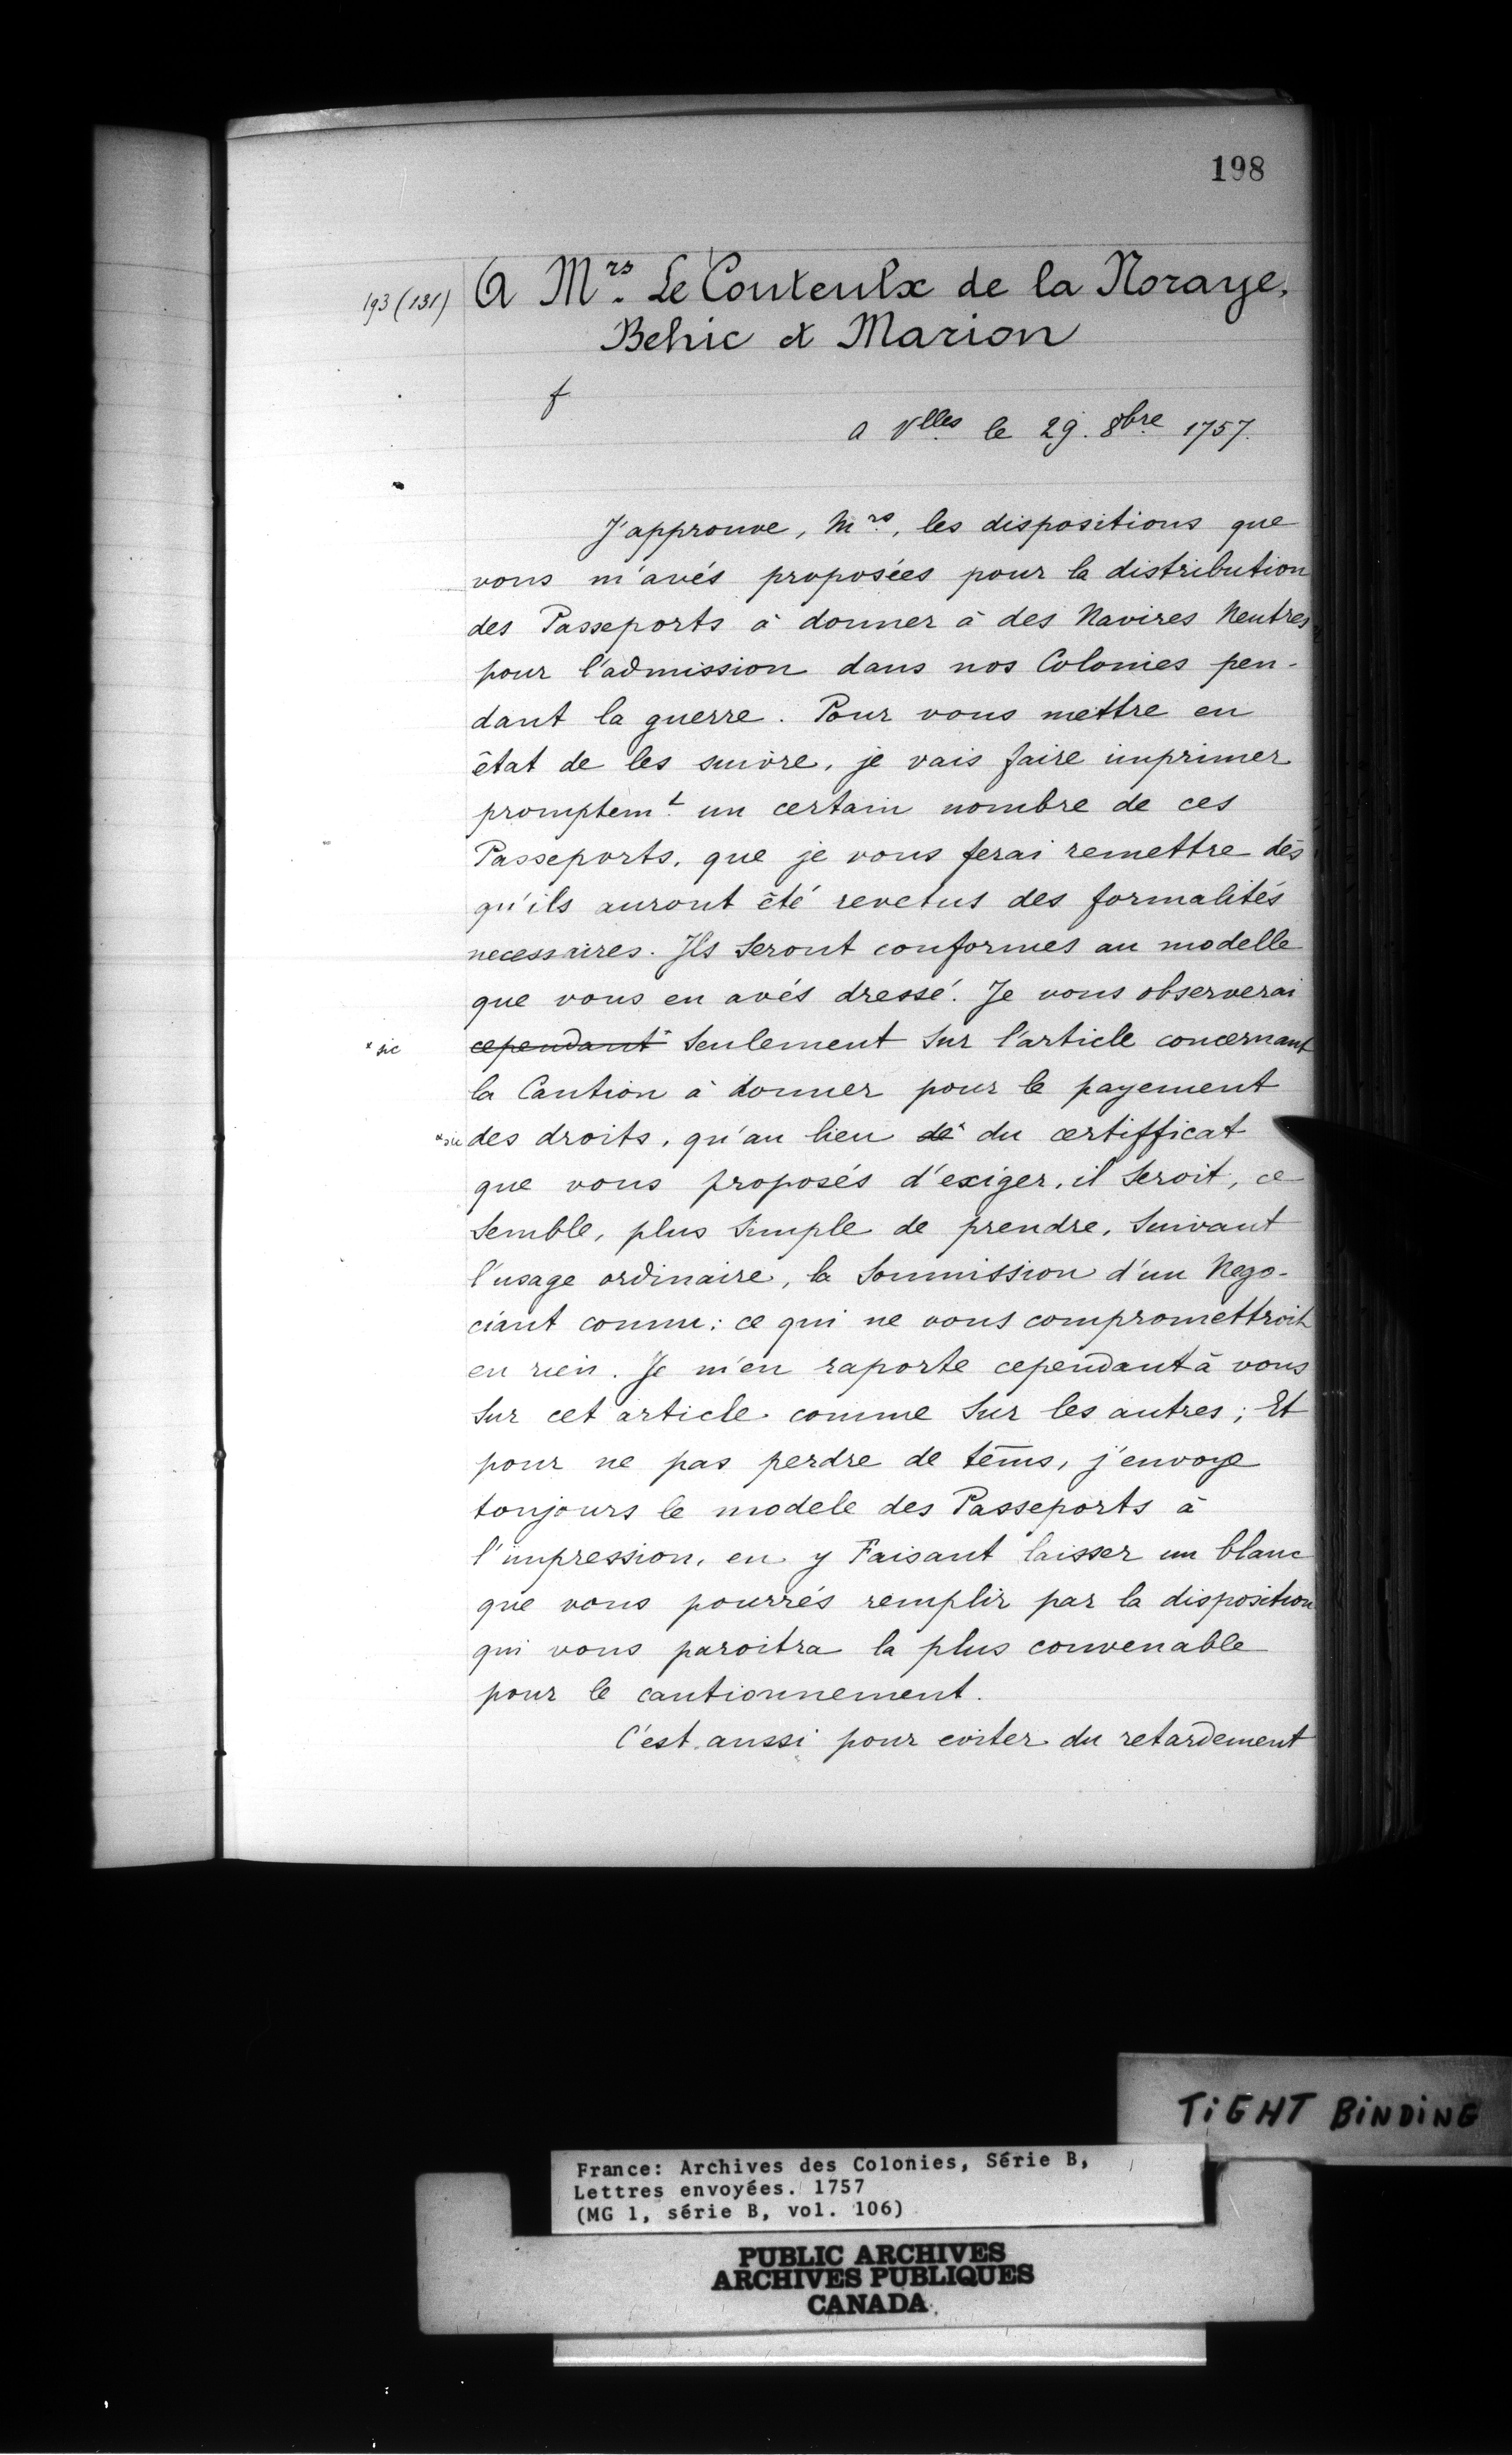 198
193 (131) A Mrs. Le Couteulx de la Noraye,
Behic & Marion
f
a Vlles le 29. 8bre 1757.
J'approuve, Mrs., les dispositions que
vous m'avés proposées pour la distribution
des Passeports à donner à des Navires Neutres
pour l'admission dans nos Colonies pen-
dant la guerre. Pour vous mettre en
état de les suivre, je vais faire imprimer
promptemt. un certain nombre de ces
Passeports, que je vous ferai remettre dès
qu'ils auront été revetus des formalités
necessaires. Ils seront conformes au modelle
que vous en avés dressé. Je vous observerai
* sic cependant* seulement sur l'article concernant
la Caution à donner pour le payement
* sic des droits, qu'au lieu de* du certifficat
que vous proposés d'exiger, il seroit, ce
semble, plus simple de prendre, suivant
l'usage ordinaire, la soumission d'un Nego-
ciant connu: ce qui ne vous compromettroit
en rien. Je m'en raporte cependant à vous
sur cet article comme sur les autres; Et
pour ne pas perdre de tems, j'envoye
toujours le modele des Passeports à
l'impression, en y Faisant laisser un blanc
que vous pourrés remplir par la disposition
qui vous paroitra la plus convenable
pour le cautionnement.
C'est aussi pour eviter du retardement
TIGHT BINDING
France: Archives des Colonies, Série B,
Lettres envoyées. 1757
(MG 1, série B, vol. 106)
PUBLIC ARCHIVES
ARCHIVES PUBLIQUES
CANADA